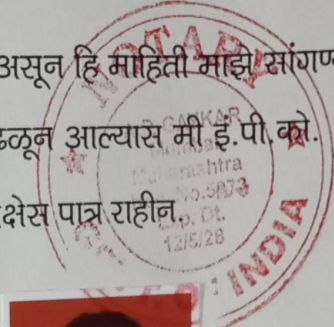 असून हि माहिती माझे सांगण
ळून आल्यास मी इं.पी.को.
क्षेस पात्र राहीन.
NOTARY
GAOKAR
Maharashtra
No.5873
Exp. Dt.
12/5/28
INDIA